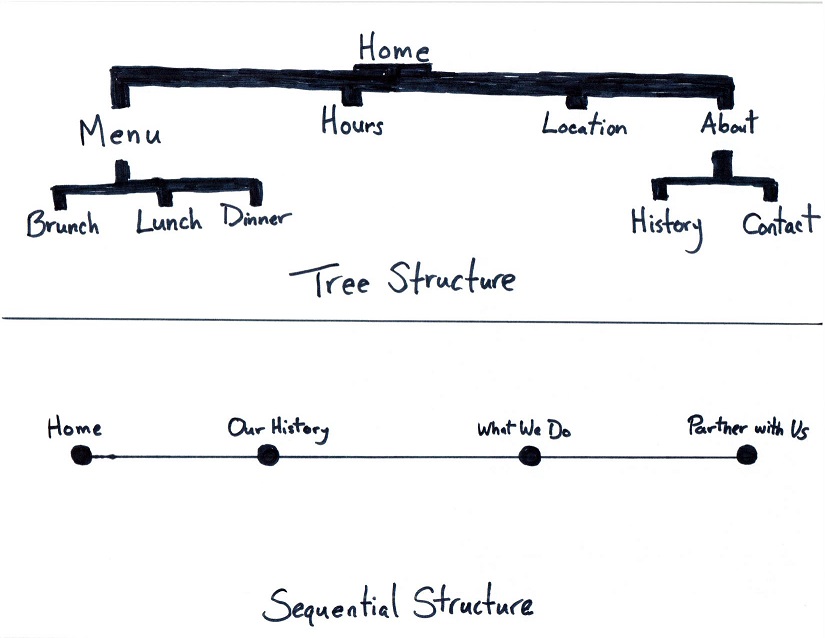 Home
Menu Hours Location About
Brunch Lunch Dinner History Contact
Tree Structure
Home Our History What We Do Partner with Us
Sequential Structure